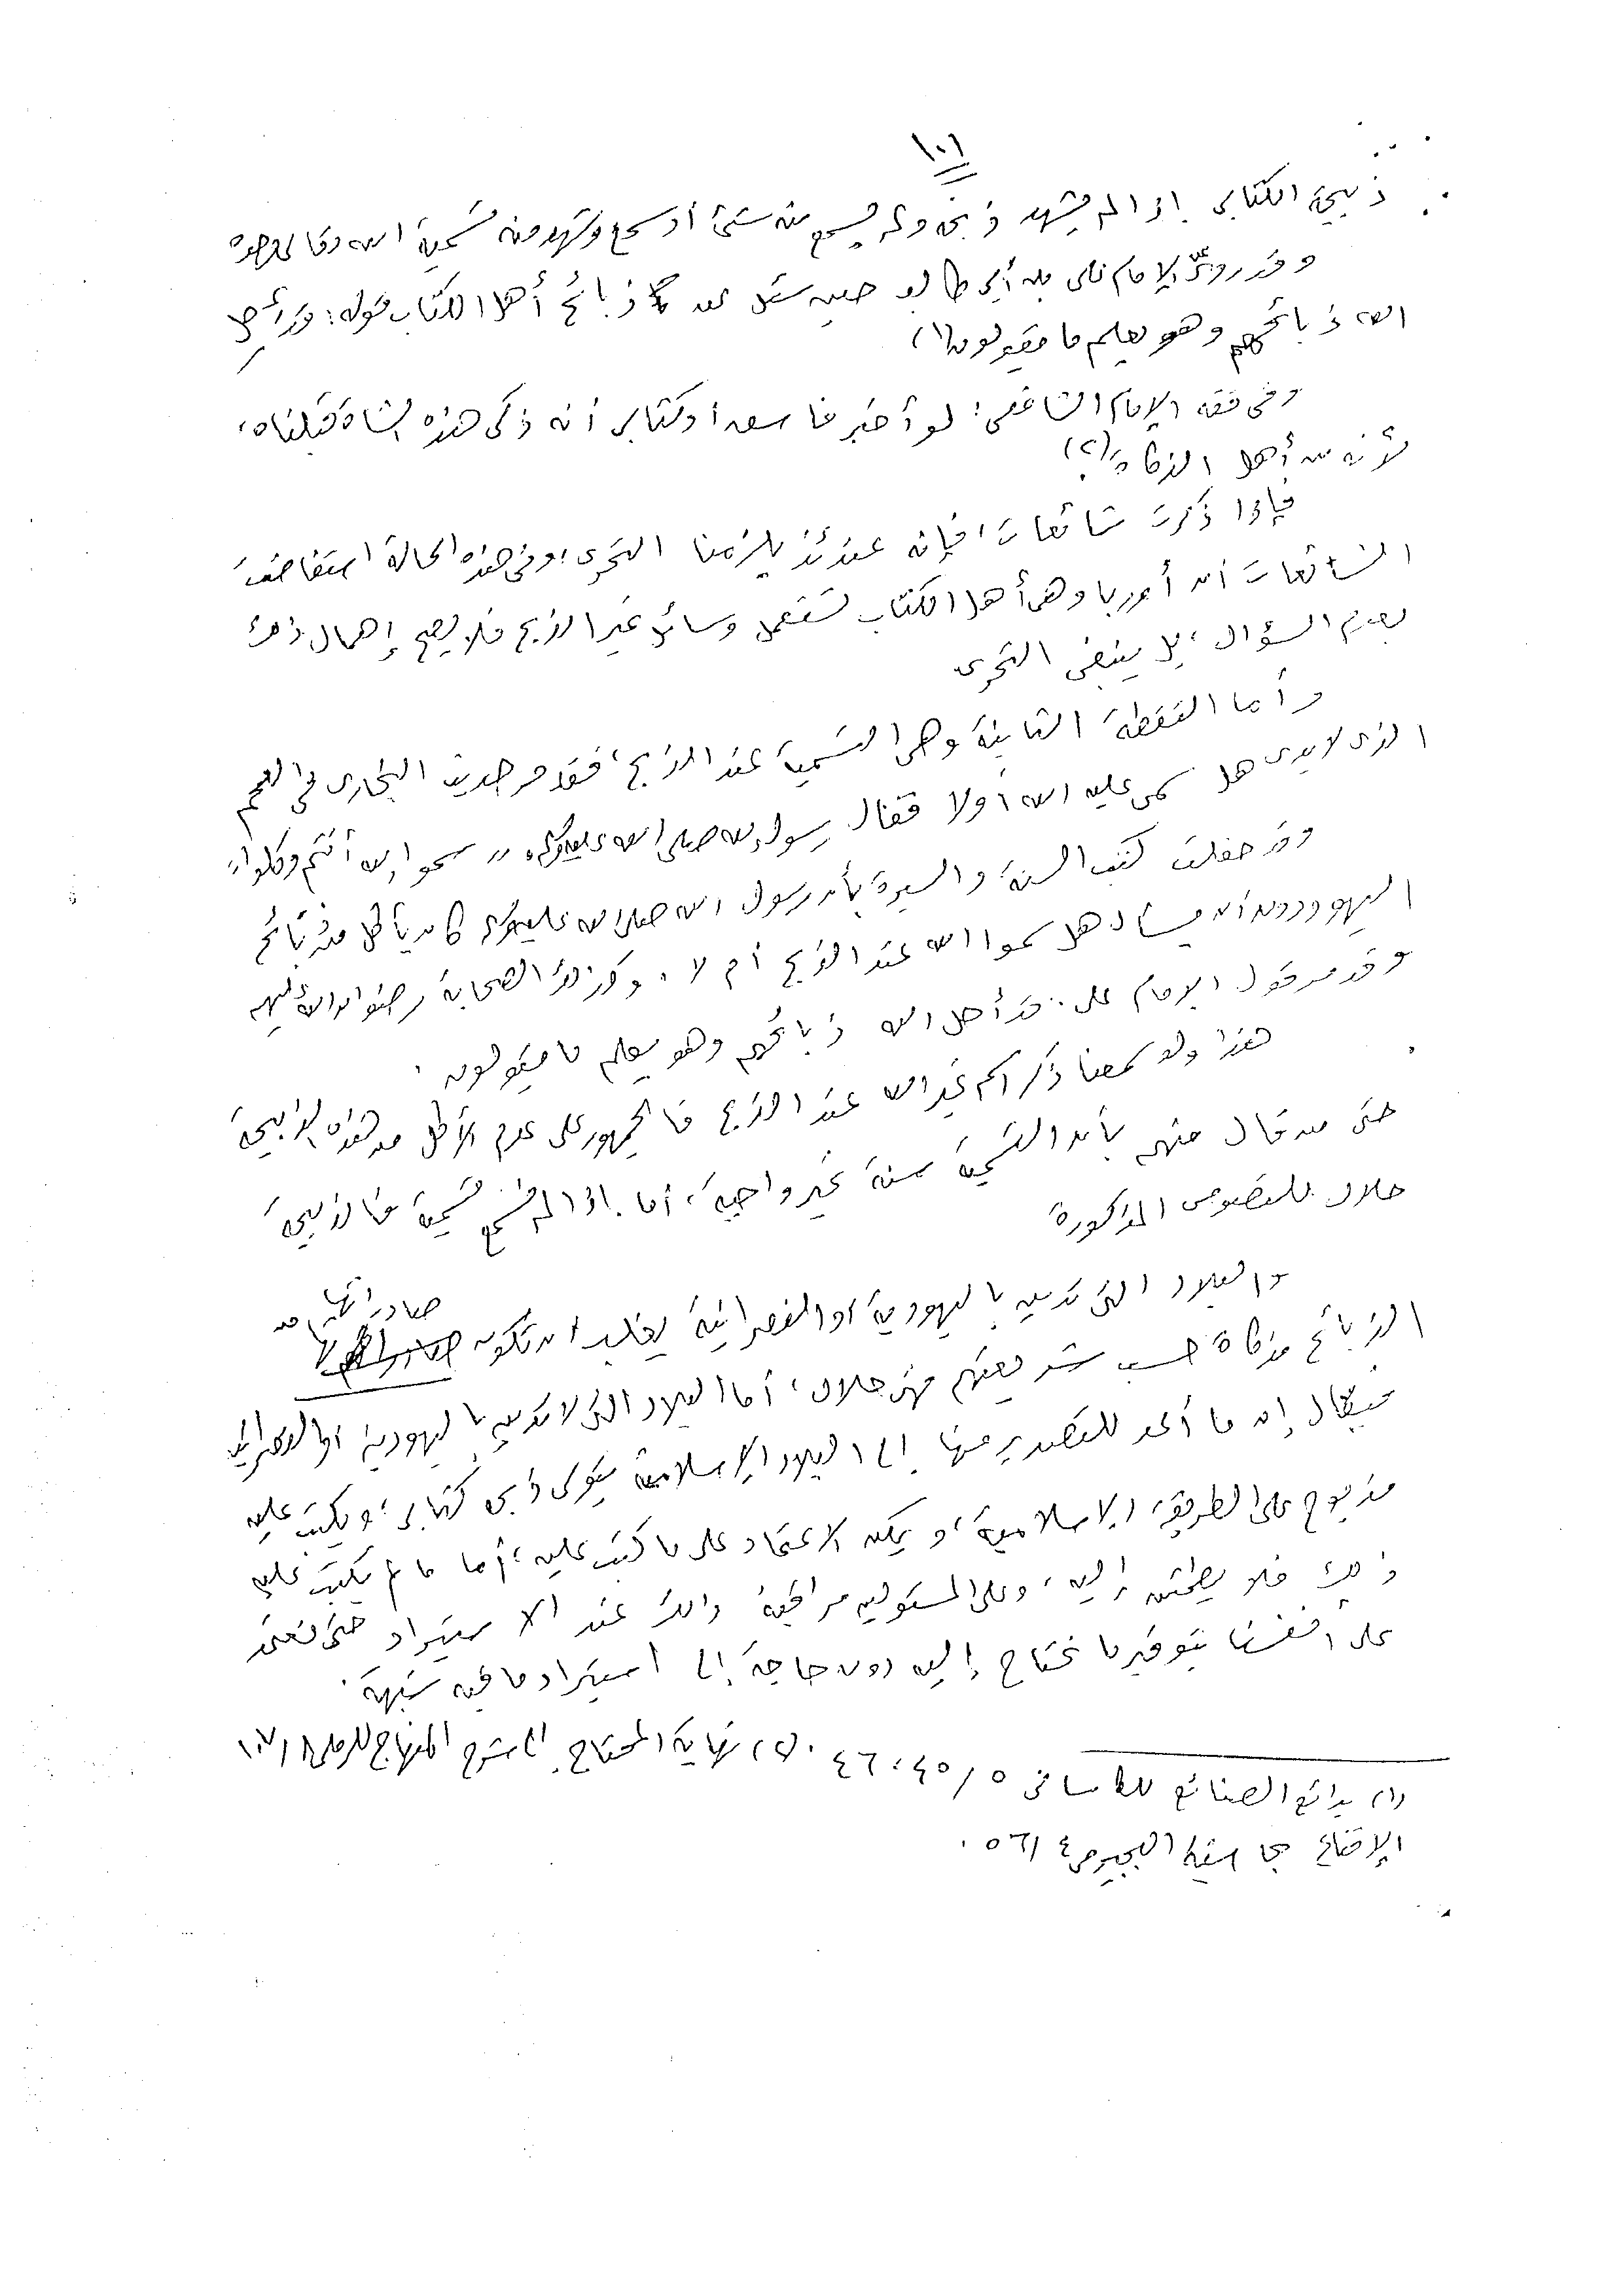 ١٠١
ذبيحة الكتابى إذا لم يشهد ذبحه ولم يسمع منه شىء أو سمع وشهد منه تسمية الله تعالى وحده
وقد روى الإمام على بن أبى طالب حين سئل عن ذبائح أهل الكتاب قوله: قد أحل
الله ذبائحهم وهو يعلم ما يقولون (١)
وفى فقه الإمام الشافعى: لو أخبر فاسق أو كتابى أنه ذكى هذه الشاة قبلناه،
لأنه من أهل الذكاة (٢)
فإذا ذكرت شائعات، فإنه عندئذ يلزمنا التحرى، وفى هذه الحالة استفاضت
الشائعات أن أوربا وهى أهل الكتاب تستعمل وسائل غير الذبح فلا يصح إهمال ذلك
بعدم السؤال، بل ينبغى التحرى
وأما النقطة الثانية وهى التسمية عند الذبح، فقد مر حديث البخارى فى اللحم
الذى لا يدرى هل سمى عليه الله أولا فقال رسول الله صلى الله عليه وسلم " سموا الله أنتم وكلوا "
وقد حفلت كتب السنة والسيرة بأن رسول الله صلى الله عليه وسلم كان يأكل من ذبائح
اليهود دون أن يسأل هل سموا الله عند الذبح أم لا. وكذلك الصحابة رضوان الله عليهم
وقد مر قول الإمام على: قد أحل الله ذبائحهم وهو يعلم ما يقولون.
هذا ولو سمعنا ذكر اسم غير الله عند الذبح فالجمهور على عدم الأكل من هذه الذبيحة
حتى من قال منهم بأن التسمية سنة غير واجبة، أما إذا لم نسمع تسمية فالذبيحة
حلال للنصوص المذكورة
والبلاد التى تدين باليهودية أو النصرانية يغلب أن تكون صادراتها من
الذبائح مذكاة حسب شريعتهم فهى حلال، أما البلاد التى لا تدين باليهودية أو النصرانية
فيقال إن ما أعد للتصدير منها إلى البلاد الإسلامية يتولى ذبحه كتابى، ويكتب عليه
مذبوح على الطريقة الإسلامية، ويمكن الاعتماد على ما كتب عليه، أما ما لم يكتب عليه
ذلك فلا يطمئن إليه، وعلى المسئولين مراقبة ذلك عند الاستيراد حتى نعتمد
على أنفسنا بتوفير ما نحتاج إليه دون حاجة إلى استيراد ما فيه شبهة.
(١) بدائع الصنائع للكاسانى ٥/٤٥، ٤٦. (٢) نهاية المحتاج إلى شرح المنهاج للرملى ٨/
الإقناع بحاشية البجيرمى ٤/٥٦.